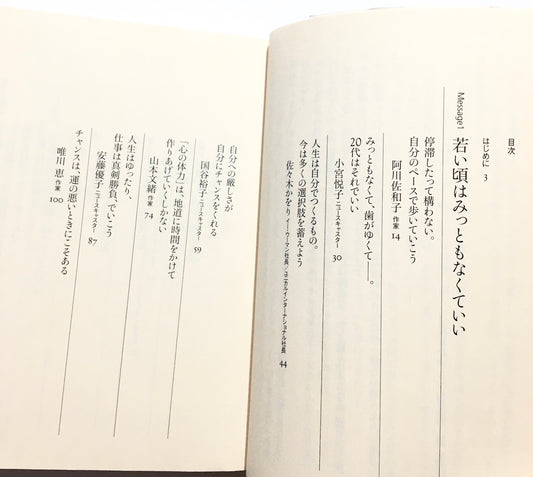 目次
はじめに 3
Message1 若い頃はみっともなくていい
停滞したって構わない。
自分のペースで歩いていこう
阿川佐和子 作家 14
みっともなくて、歯がゆくて——。
20代はそれでいい
小宮悦子 ニュースキャスター 30
人生は自分でつくるもの。
今は多くの選択肢を蓄えよう
佐々木かをり イー・ウーマン社長/ユニカルインターナショナル社長 44
自分への厳しさが
自分にチャンスをくれる
国谷裕子 ニュースキャスター 59
「心の体力」は、地道に時間をかけて
作りあげていくしかない
山本文緒 作家 74
人生はゆったり、
仕事は真剣勝負、でいこう
安藤優子 ニュースキャスター 87
チャンスは、運の悪いときにこそある
唯川 恵 作家 100